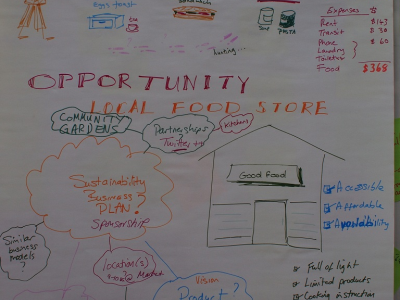 Expenses
Rent $143
Transit $ 30
Phone
Laundry
Toiletries
$ 60
Food $368
eggs toast
tea
Soup
PASTA
OPPORTUNITY
LOCAL FOOD STORE
COMMUNITY
GARDENS
Partnerships
? Twitter ty
Kitchens
Sustainability
Business?
PLAN!
SPONSORSHIP
Good Food
Accessible
Affordable
Availability
Similar
business
models?
location(s)
Market
Vision
Product?
Full of light
Limited products
Cooking instruction